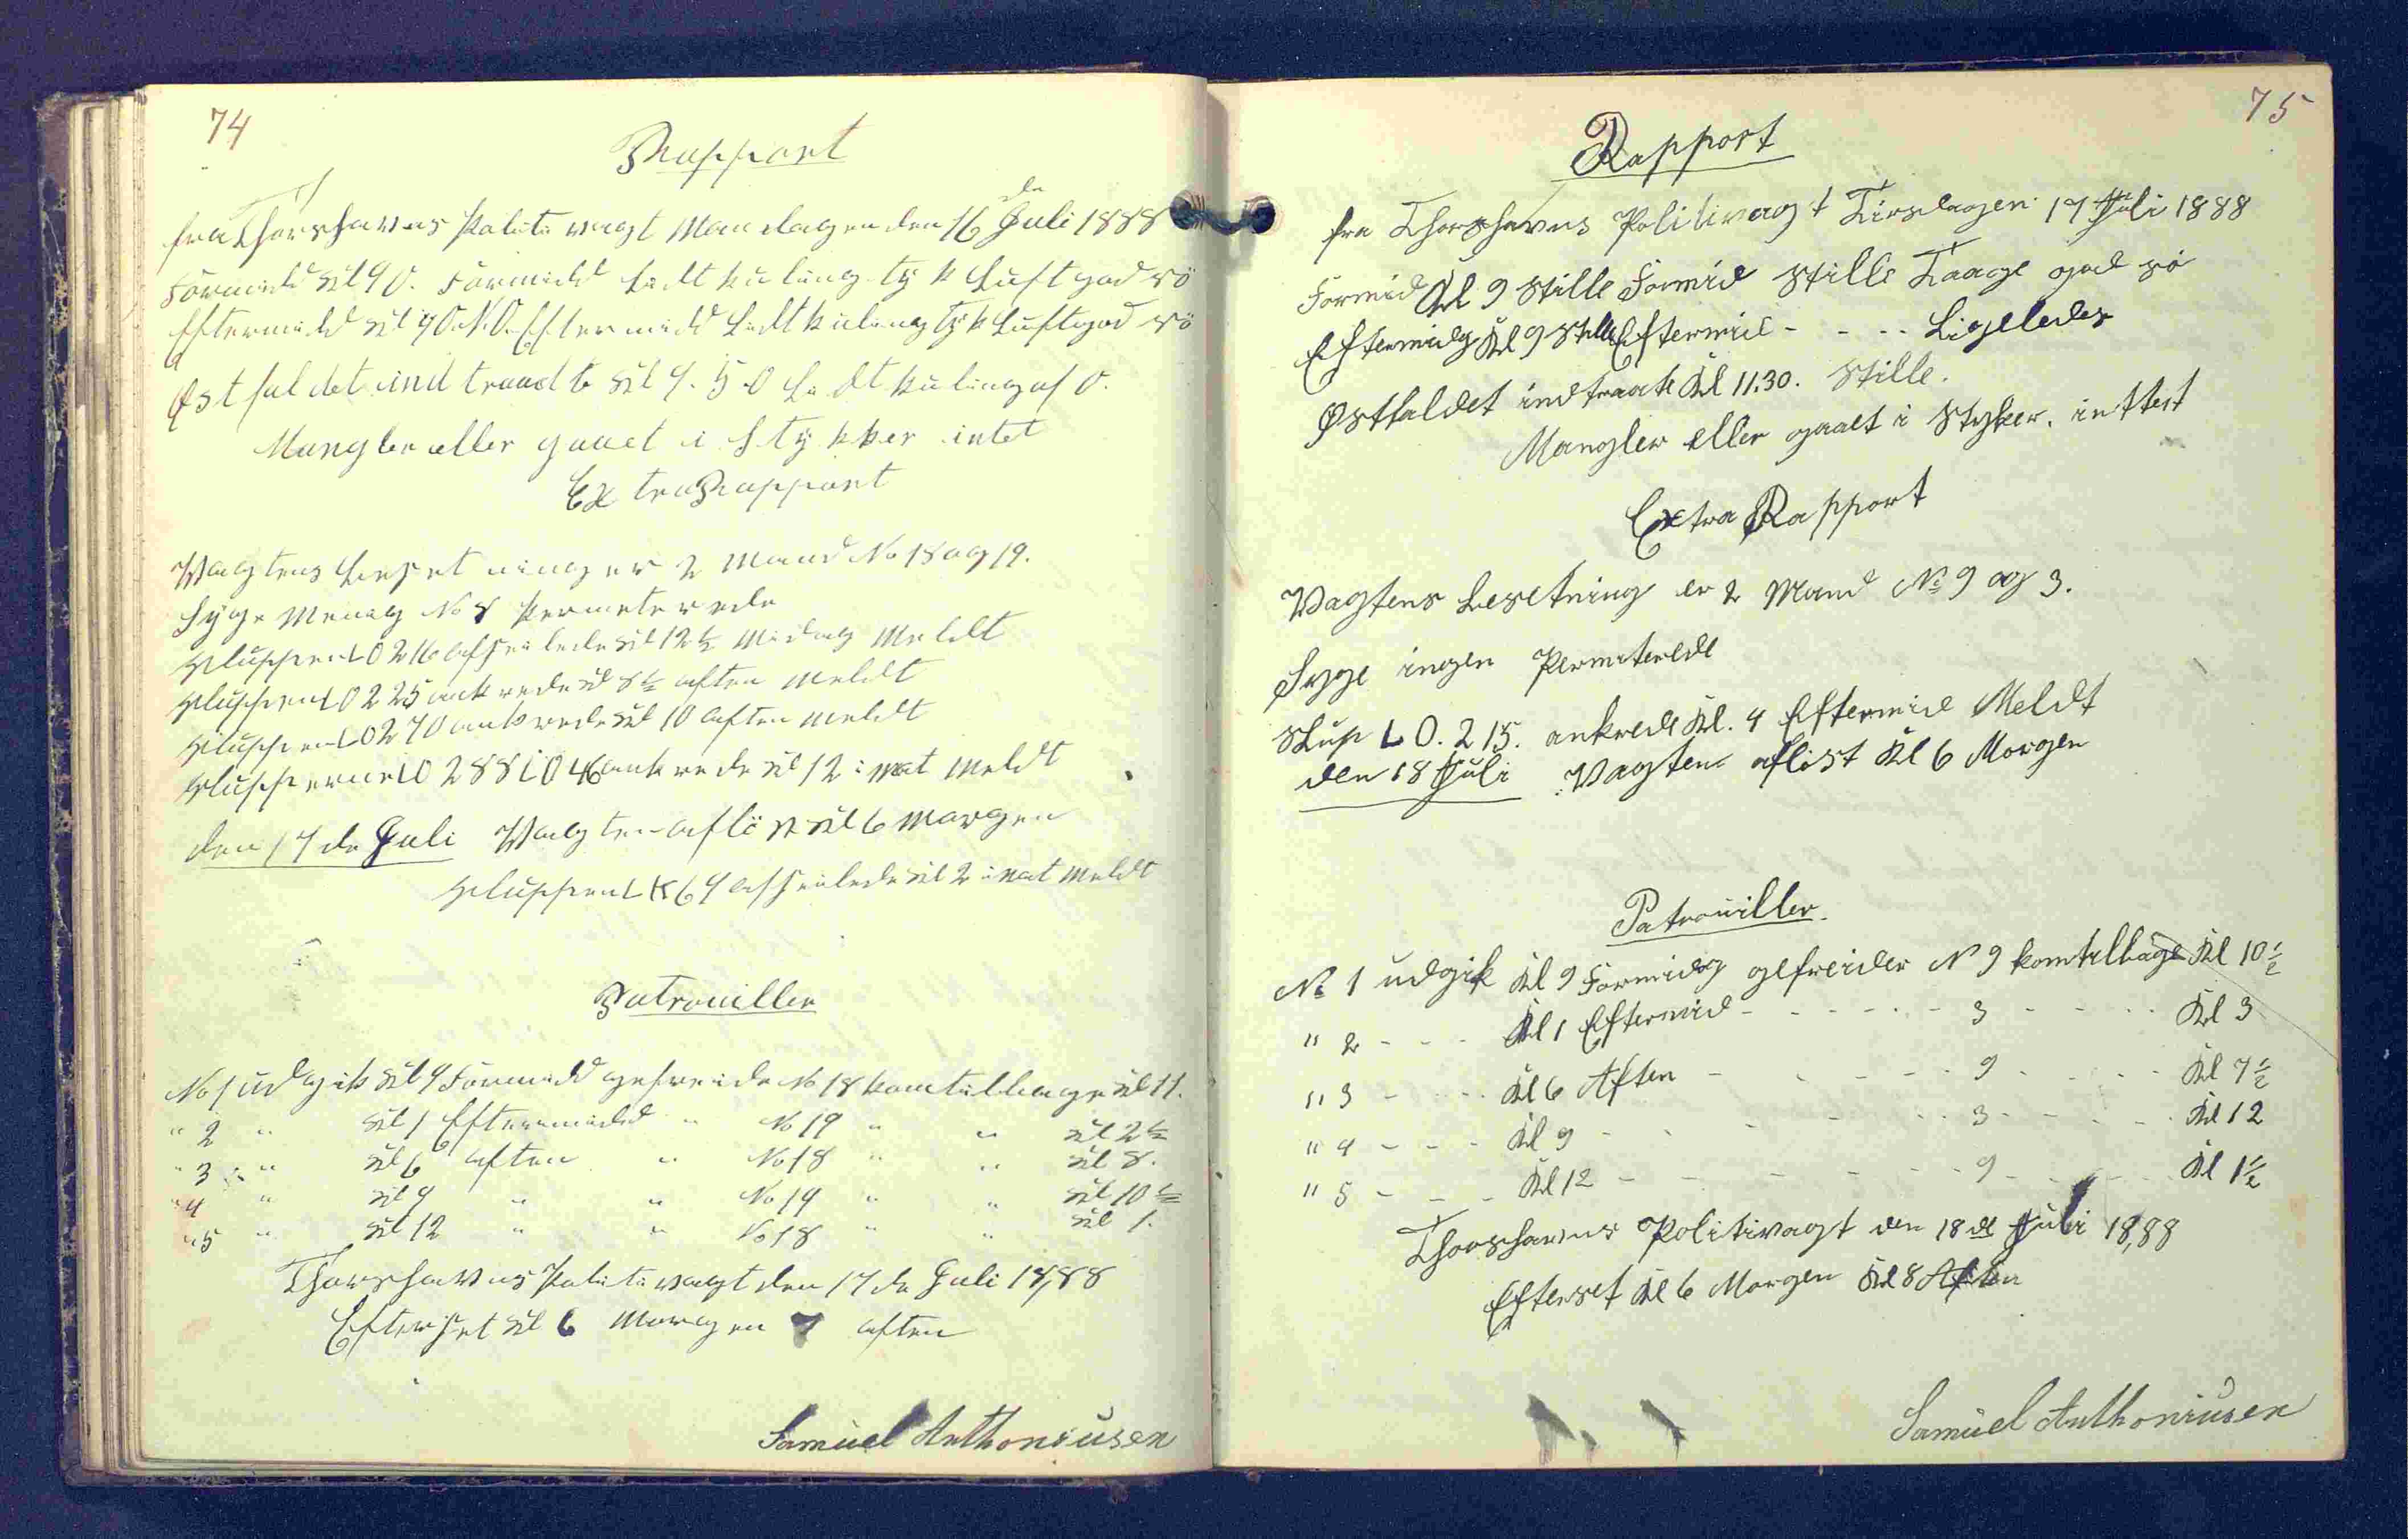 74
Rapport
fra Thorshavns Politivagt Mandagen den 16 de Juli 1888
Formidd Kl 9 O. Formidd Lidt Kuling tyk Luft god sö
Eftermidd Kl 9 O.N.O. Eftermidd Lidt Kuling tyk Luft god sö
Østfaldet indtraadte Kl 9.50 Lidt Kuling af O.
Mangler eller gaaet i Stykker intet
Extra Rapport
Vagtens Besetning er 2 Mand No 18 og 19.
Syge Menig No 8 Permeterede
Sluppen LO 216 afseilede Kl 12½ Midag Meldt
Sluppen LO 225 ankrede Kl 8½ aften Meldt
Sluppen LO 270 ankrede Kl 10 Aften Meldt
Slupperne LO 288 LO 46 ankrede Kl 12 i nat Meldt
den 17 de Juli Vagten aflöst Kl 6 Morgen
Sluppen LK 64 afseilede Kl 2 i nat Meldt
Patrouiller
No 1 udgik Kl 9 Formidd gefreide No 18 kom tilbage Kl 11.
" 2 " Kl 1 Eftermidd " No 19 " " Kl 2½
" 3 " Kl 6 Aften " No 18 " " Kl 8.
" 4 " Kl 9 " " No 19 " " Kl 10½
" 5 " Kl 12 " " No 18 " " Kl 1.
Thorshavns Politivagt den 17 de Juli 18,88
Efterset Kl 6 Morgen 7 aften
Samuel Anthoniusen
75
Rapport
fra Thorshavns Politivagt Tirsdagen 17 Juli 1888
Formid Kl 9 Stille Formid Stille Taage god sö
Eftermidg Kl 9 Stille Eftermid - - - - Ligeledes
Østfaldet indtraate Kl 11.30. Stille.
Mangler eller gaaet i Styker. inttet
Extra Rapport
Vagtens Besetning er 2 Mand No 9 og 3.
Syge ingen Permeterede
Slup LO. 215. ankrede Kl. 4 Eftermid Meldt
den 18 Juli Vagten aflöst Kl 6 Morgen
Patrouiller
No 1 udgik Kl 9 Formidg gefreider N 9 kom tilbage Kl 10½
" 2 - - - Kl 1 Eftermid - - - - - 3 - - - - Kl 3
" 3 - - - Kl 6 Aften - - - - - 9 - - - - Kl 7½
" 4 - - - Kl 9 - - - - - 3 - - - - Kl 12
" 5 - - - Kl 12 - - - - - 9 - - - - Kl 1½
Thorshavns Politivagt den 18 de Juli 18,88
Efterset Kl 6 Morgen Kl 8 Aften
Samuel Anthoniusen